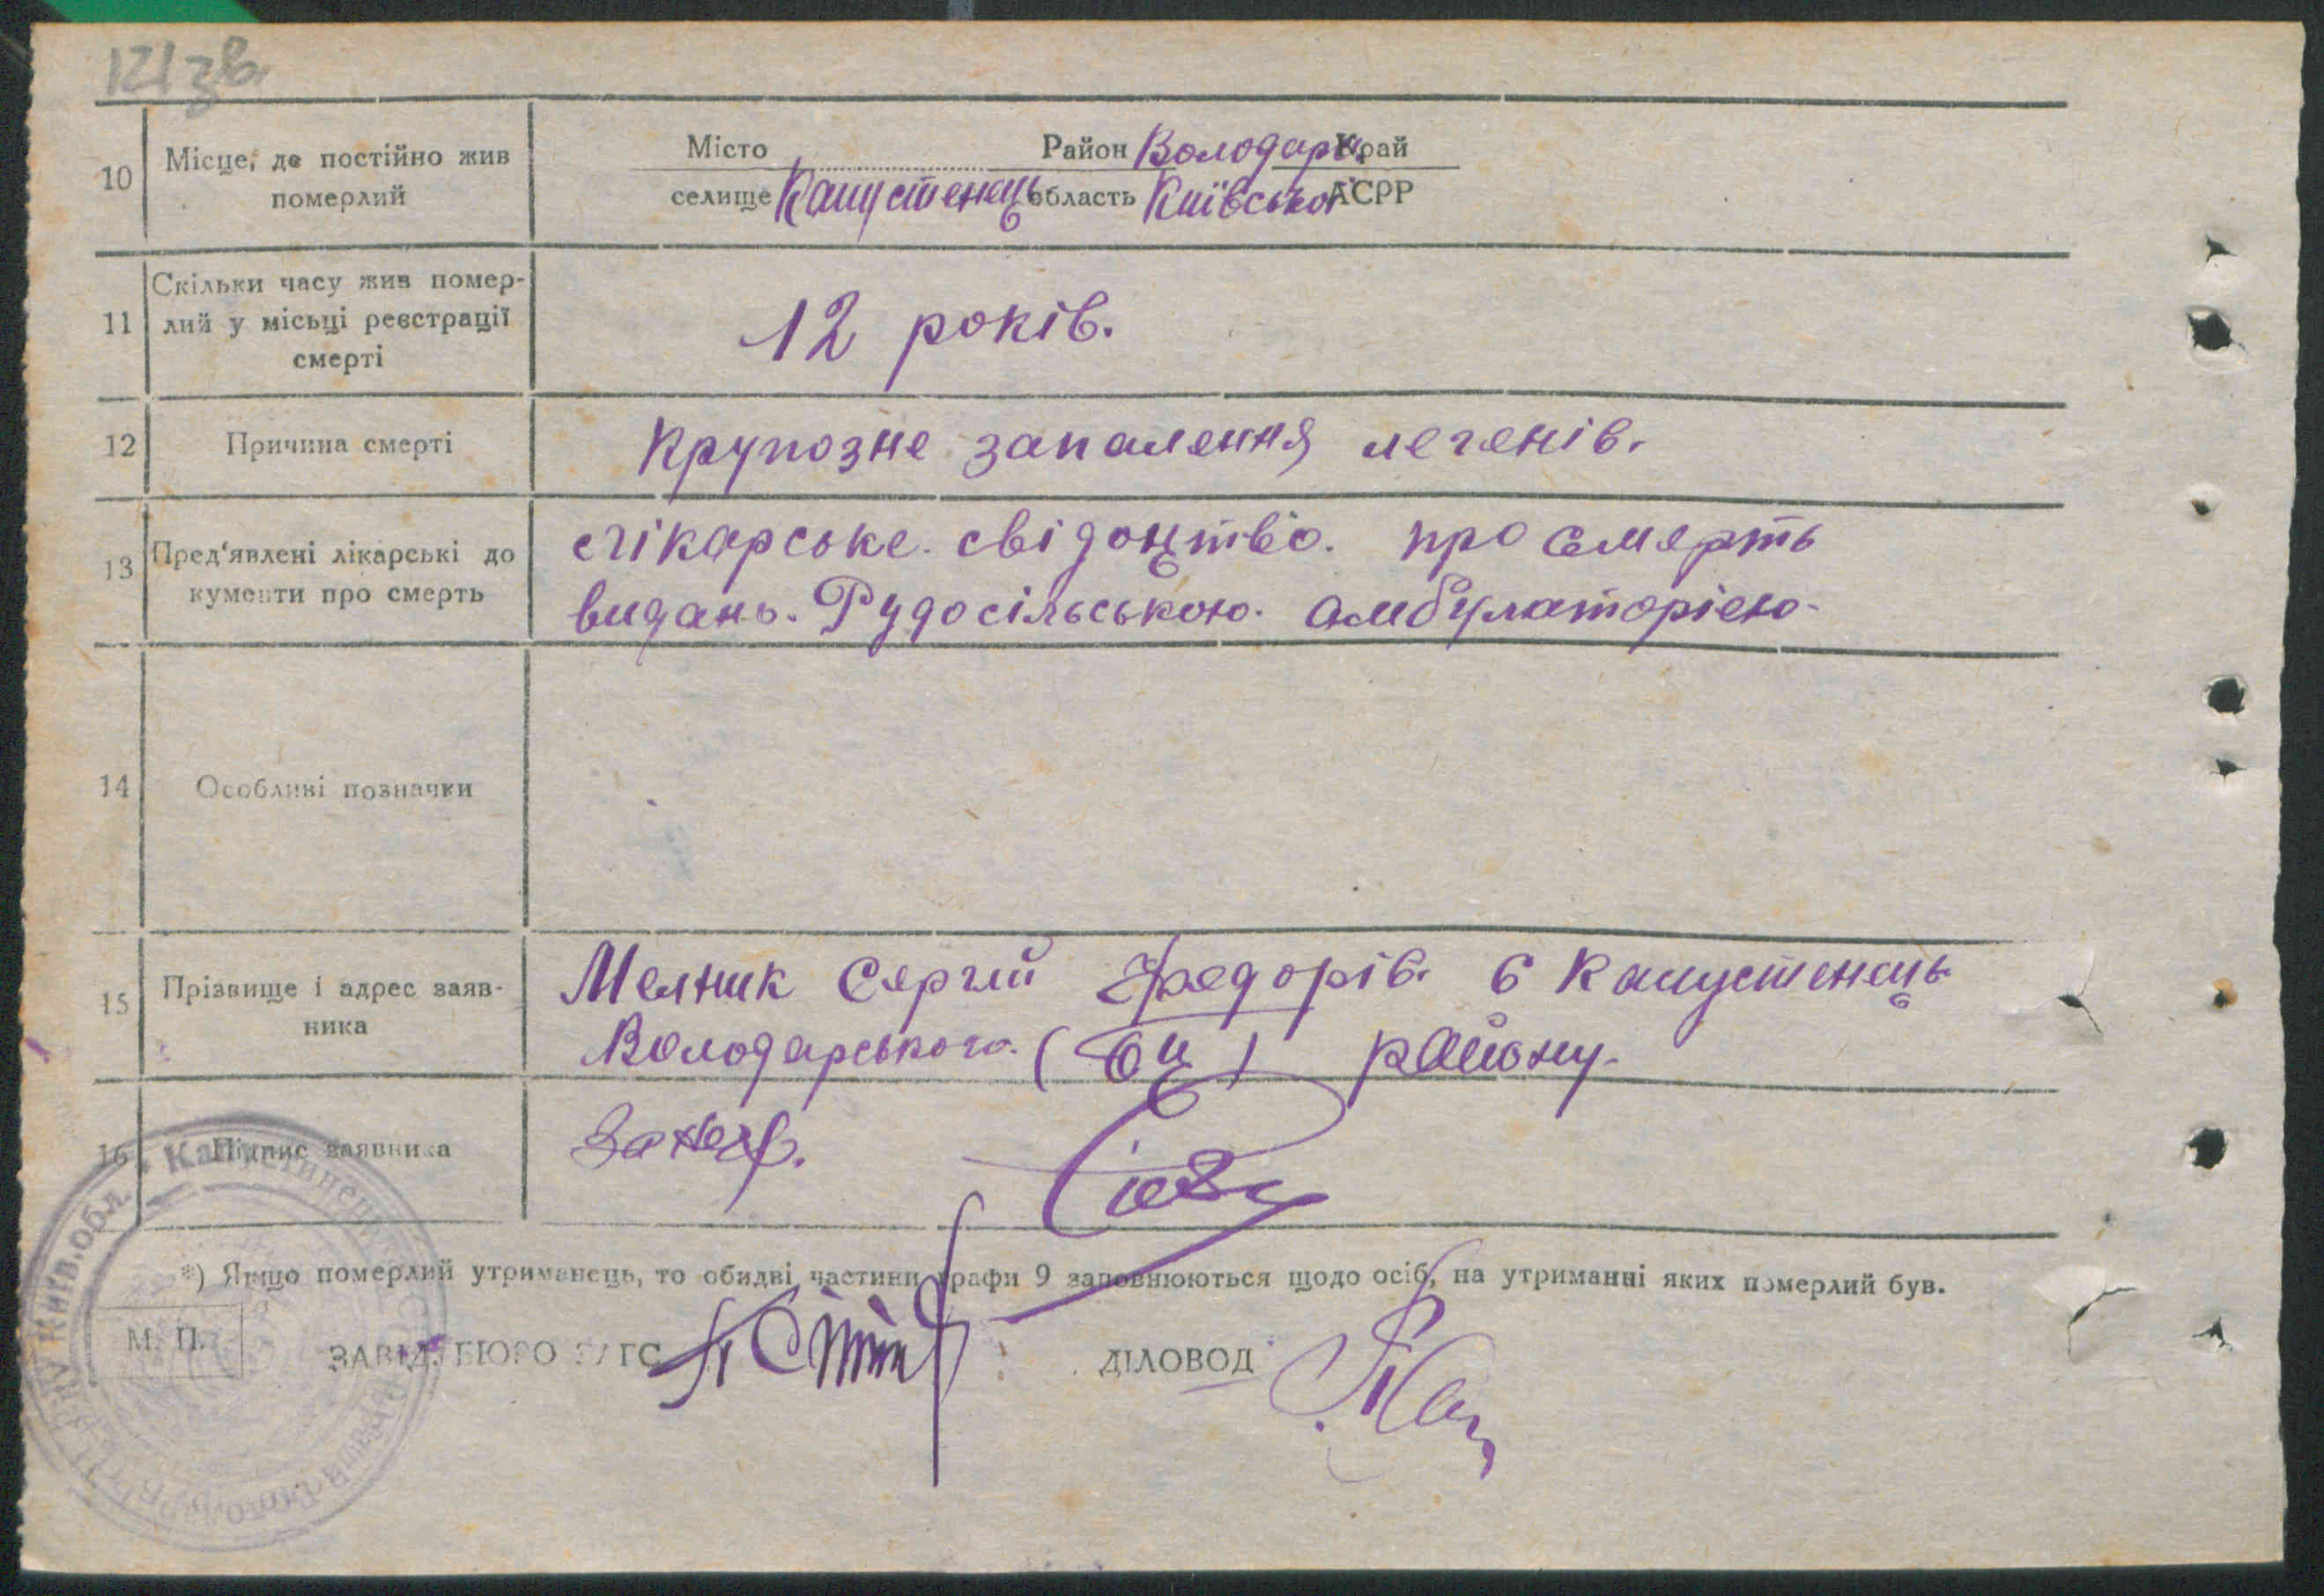 121зв.
10 Місце, де постійно жив померлий
Місто Район Володарс. Край
селище Капустенець область Київської АСРР
11 Скільки часу жив помер-
лий у місьці реєстрації
смерті
12 років.
12 Причина смерті
Крупозне запалення легенів.
13 Пред'явлені лікарські до
кументи про смерть
лікарське. свідоцтво. про смерть
видань. Рудосільською. амбулаторією.
14 Особливі позначки
15 Прізвище і адрес заяв-
ника
Мелник Сергий Федорів. с Капустенець
Володарського (бц) району.
16 Підпис заявника
За негр.
*) Якщо померлий утриманець, то обидві частини графи 9 заповнюються щодо осіб, на утриманні яких померлий був.
М. П.
ЗАВІД. БЮРО ЗАГС
ДІЛОВОД
Київ.обл.